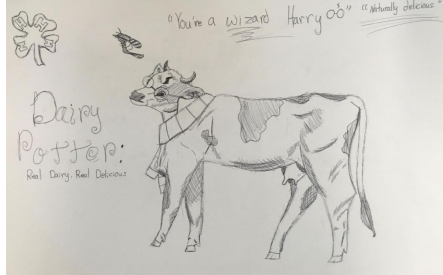 "You're a wizard Harry oo"
"Naturally delicious"
Dairy
Potter:
Real Dairy. Real Delicious